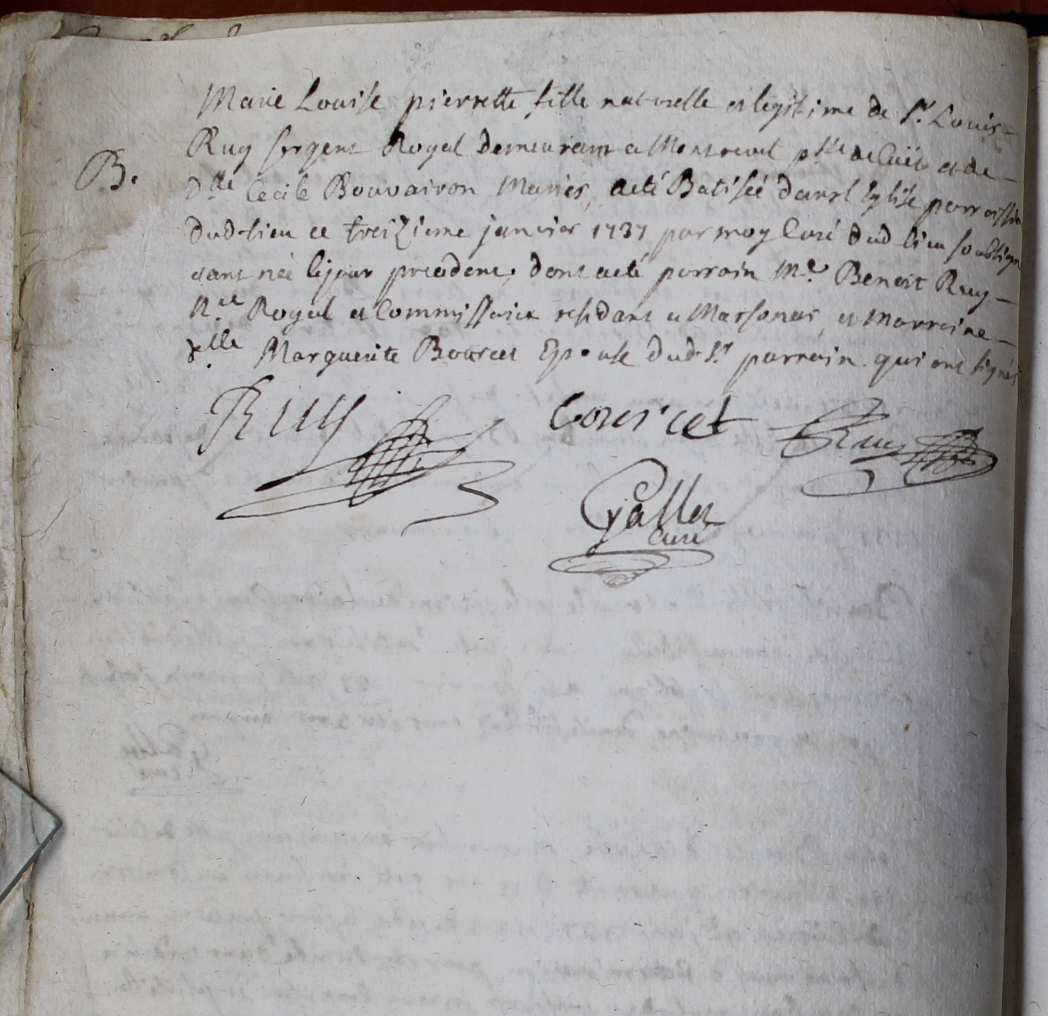 B.
Marie Louise pierrette fille naturelle et legitime de Sr. Louis
Ruy sergent Royal demeurant a Montreval psse de Cuët et de
Dlle Cecile Bouvairon Mariés, a eté Batisée dans l'Eglise parroissial
dud lieu ce treizieme janvier 1737 par moy Curé dud lieu soubsigné
etant née le jour precedent, dont a eté parrain Mre Benoit Ruy
Nre Royal et Commissaire residant a Marsonas, et Marraine
Dlle Marguerite Bourcet Epouse dud Sr parrain qui ont signés
Ruy
bourcet
Ruy
Gallet
curé